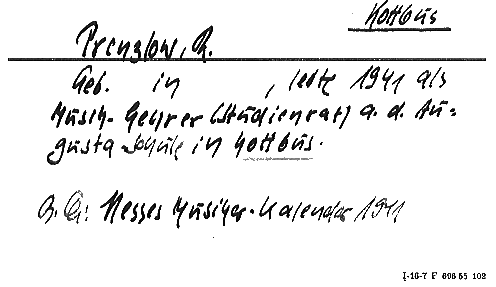 Kottbus
Prenzlow, R.
Geb. in , lebte 1941 als
Musik-Lehrer (Studienrat) a. d. Au-
gusta-Schule in Kottbus.
Hesses Musiker-Kalender 1941
I-16-7 F 696 55 102